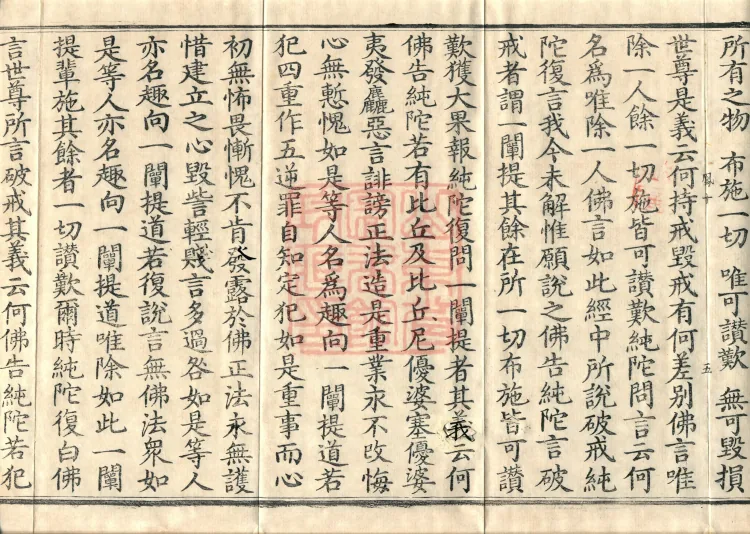 所有之物 布施一切 唯可讚歎 無可毀損
五
世尊是義云何持戒毀戒有何差別佛言唯
除一人餘一切施皆可讚歎純陀問言云何
名爲唯除一人佛言如此經中所說破戒純
陀復言我今未解惟願說之佛告純陀言破
戒者謂一闡提其餘在所一切布施皆可讚
歎獲大果報純陀復問一闡提者其義云何
佛告純陀若有比丘及比丘尼優婆塞優婆
夷發麤惡言誹謗正法造是重業永不改悔
心無慙愧如是等人名爲趣向一闡提道若
犯四重作五逆罪自知定犯如是重事而心
初無怖畏慚愧不肯發露於佛正法永無護
惜建立之心毀訾輕賤言多過咎如是等人
亦名趣向一闡提道若復說言無佛法衆如
是等人亦名趣向一闡提道唯除如此一闡
提輩施其餘者一切讚歎爾時純陀復白佛
言世尊所言破戒其義云何佛告純陀若犯